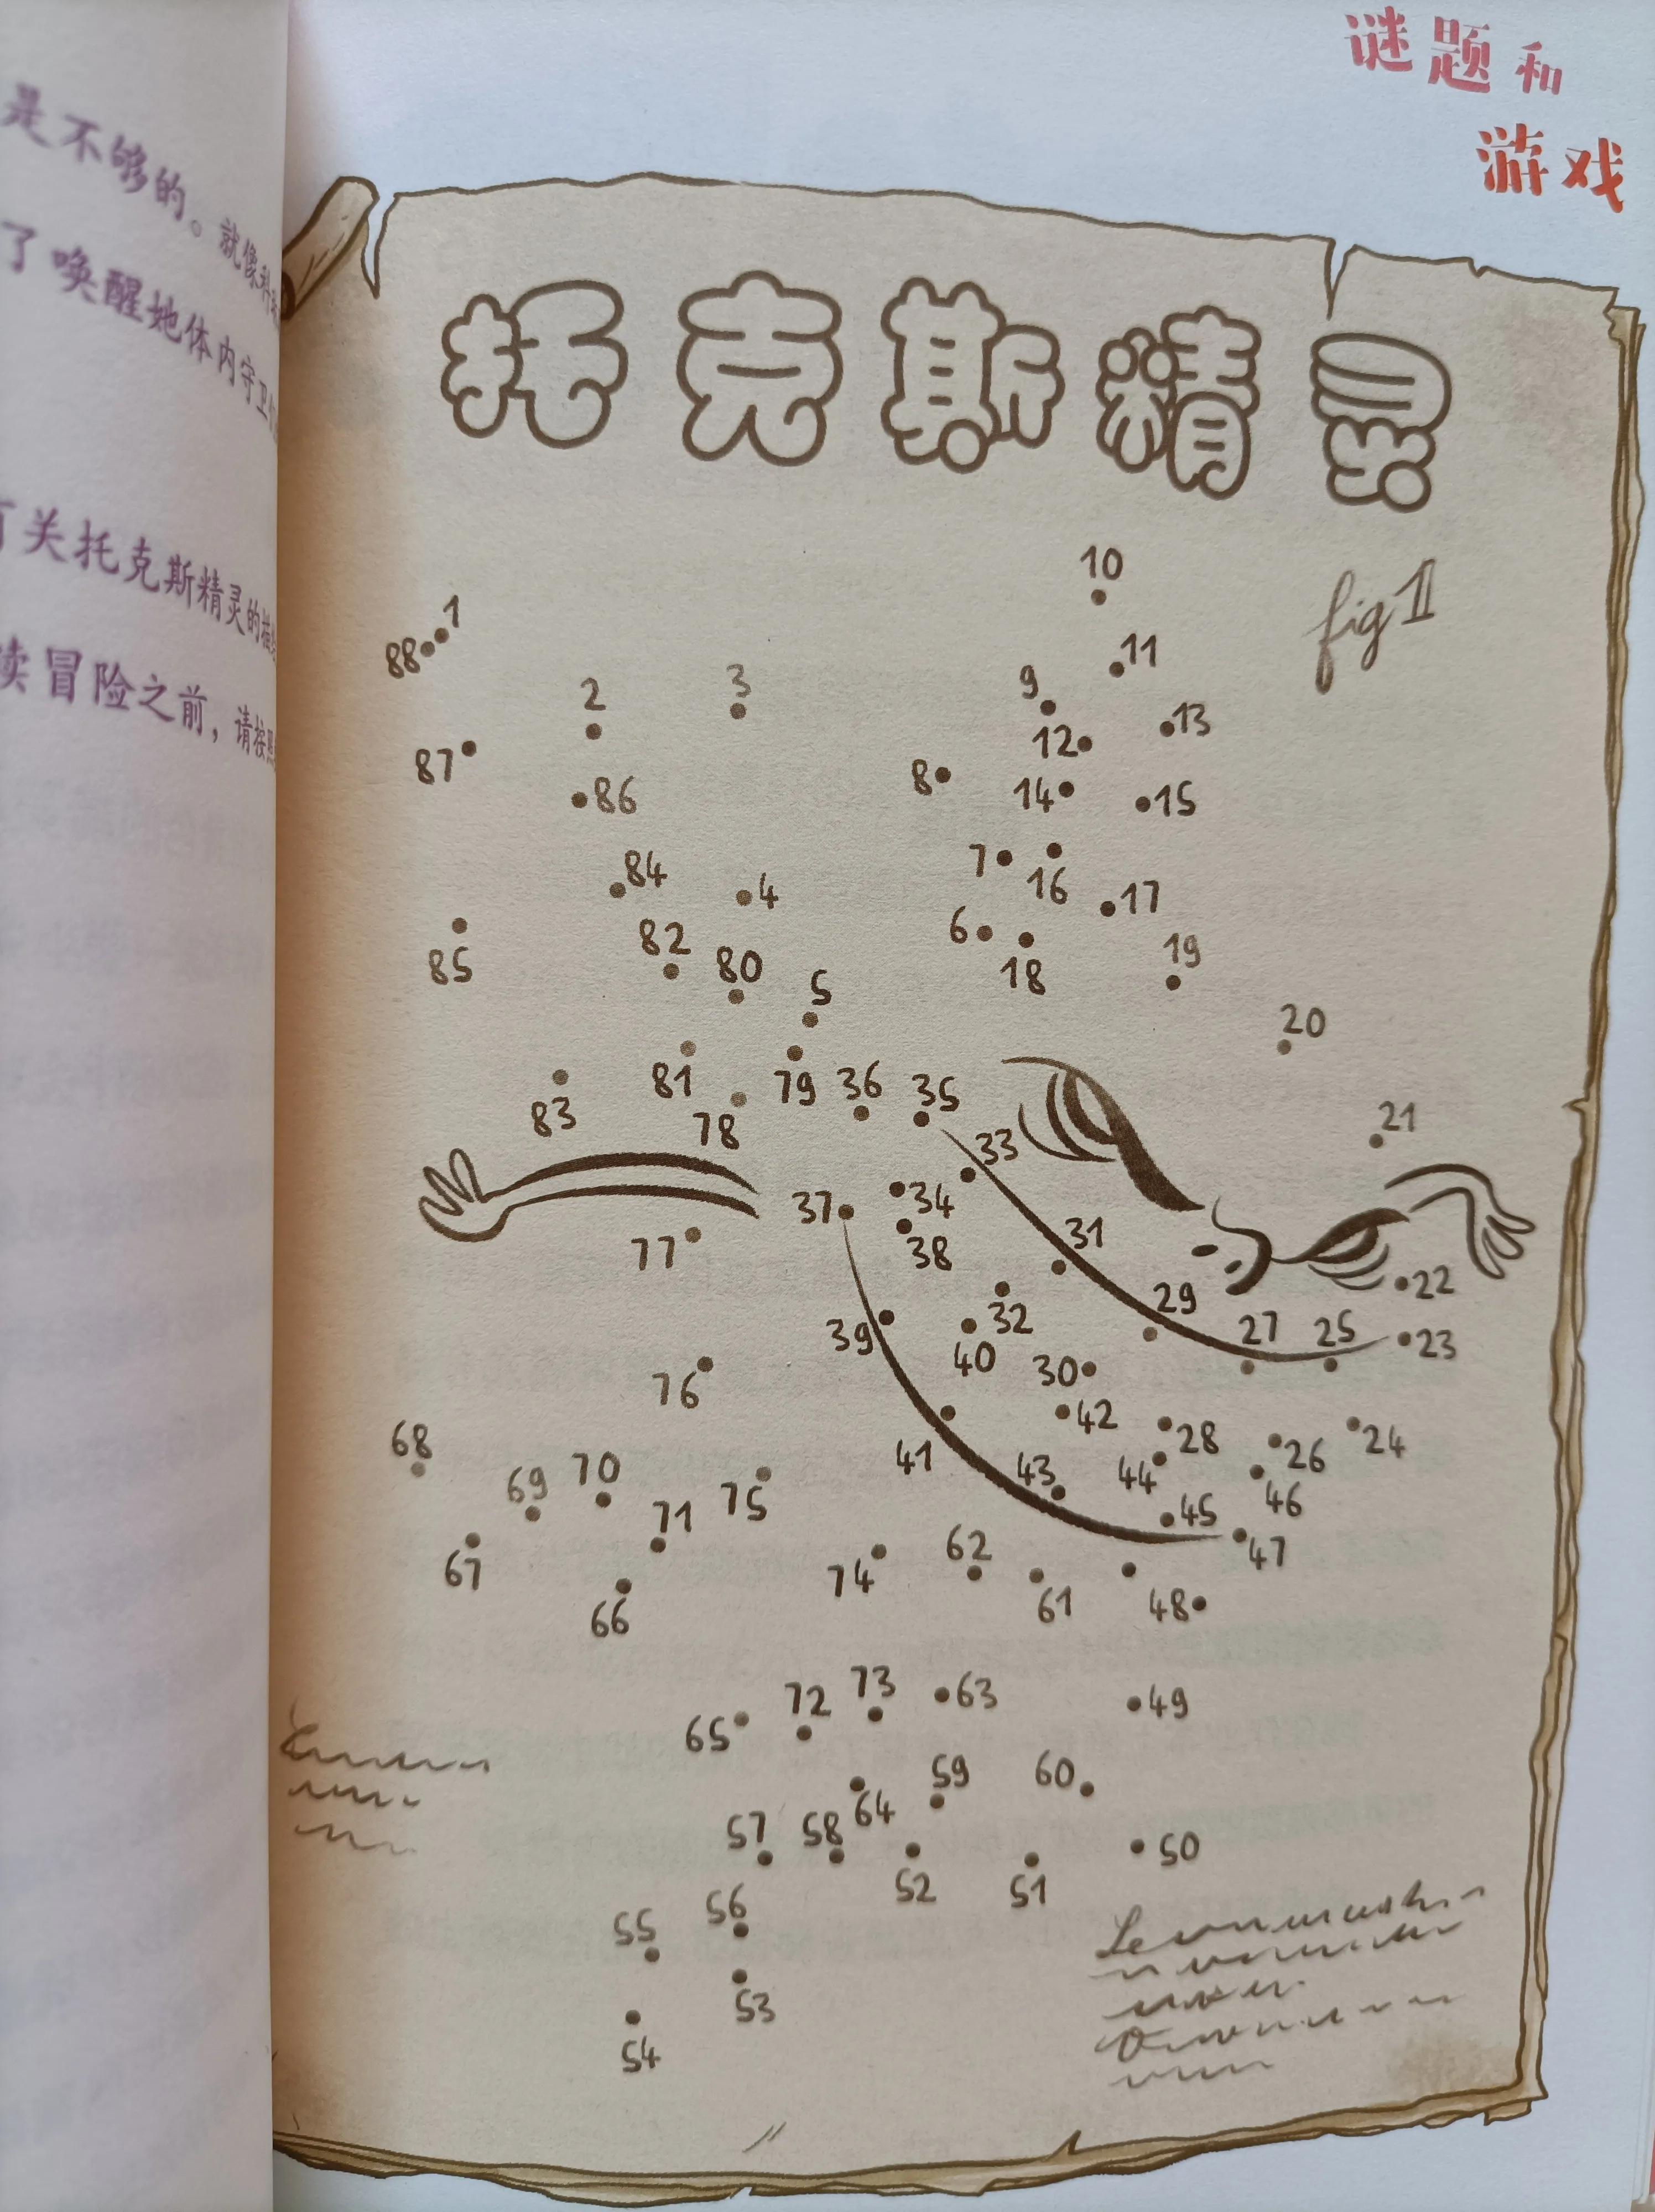 谜题和
游戏
是不够的。就像科
了唤醒她体内守卫
有关托克斯精灵的描
读冒险之前，请按照
托克斯精灵
fig II
10
1
11
88
9
2
3
13
12
87
8
14
15
86
7
84
16
4
17
6
82
19
85
80
18
5
20
81
79
36
35
83
78
21
33
37
34
38
77
31
22
29
32
39
27
25
23
40
30
76
42
68
28
24
70
41
43
44
26
69
75
71
45
46
67
62
47
74
66
61
48
73
63
72
49
65
59
60
64
57
58
50
52
51
56
55
53
54